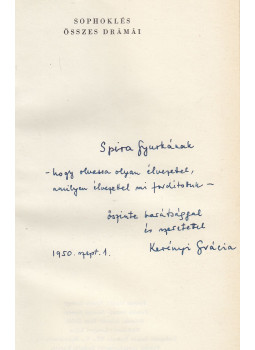 SOPHOKLÉS
ÖSSZES DRÁMÁI
Spira Gyurkának
- hogy olvassa olyan élvezettel,
amilyen élvezettel mi fordítottuk -
őszinte barátsággal
és szeretettel
1950. szept. 1. Kerényi Grácia